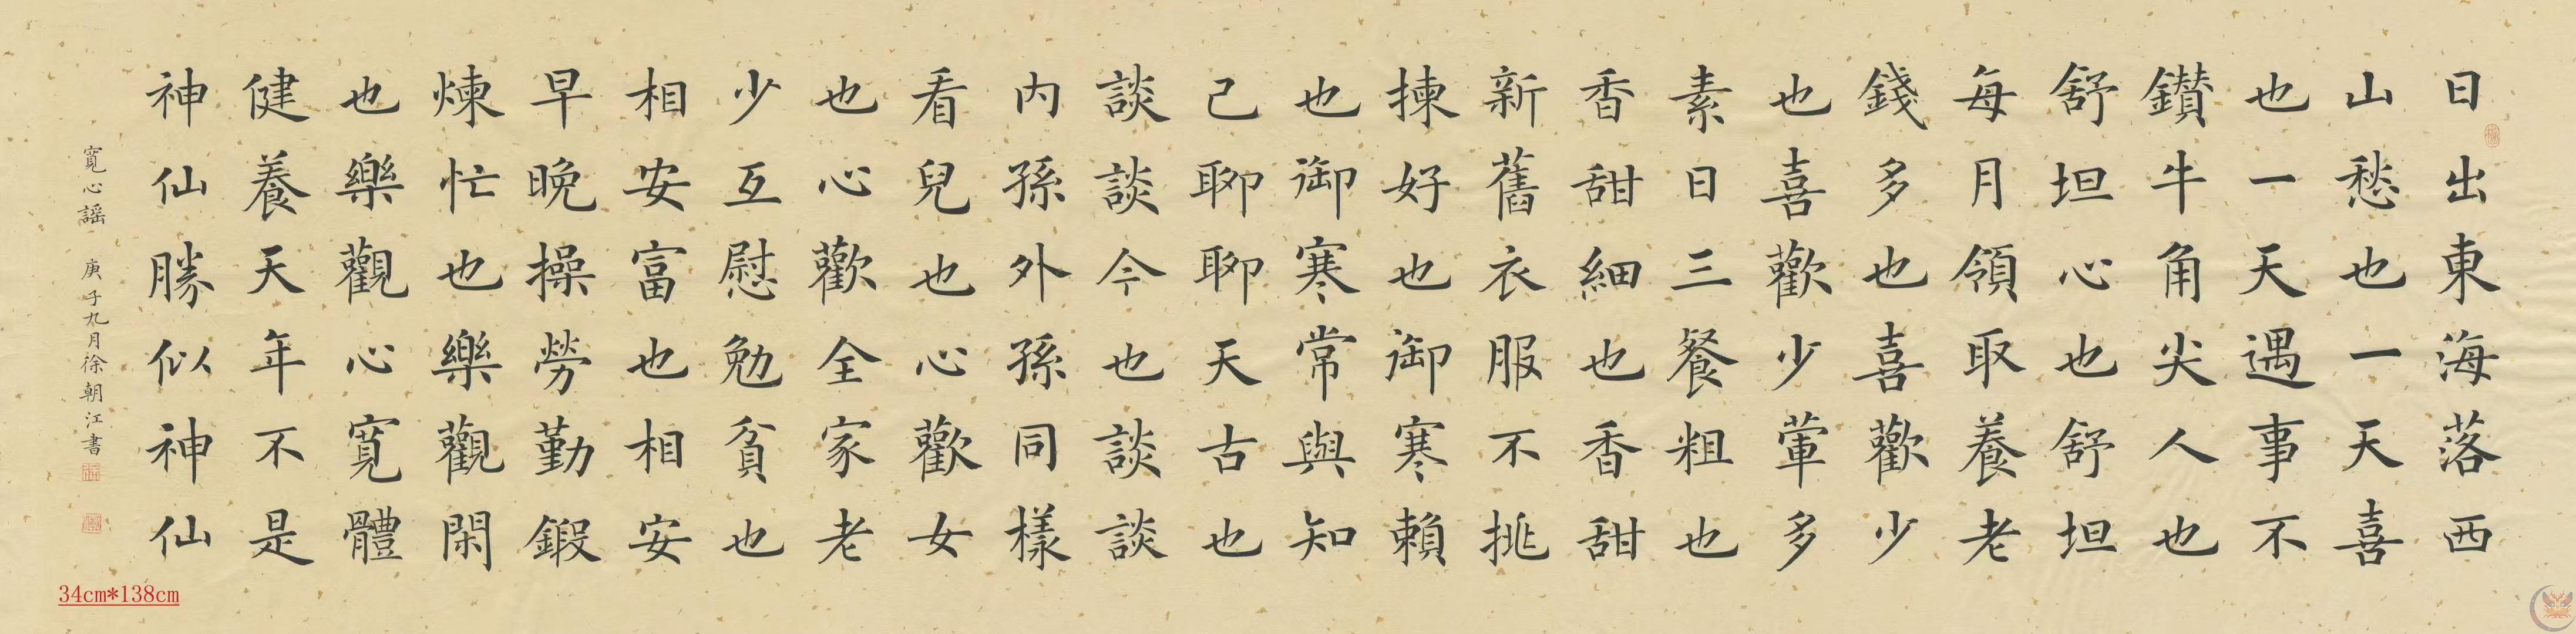 日出東海落西
山愁也一天喜
也一天遇事不
鑽牛角尖人也
舒坦心也舒坦
每月領取養老
錢多也喜歡少
也喜歡少葷多
素日三餐粗也
香甜細也香甜
新舊衣服不挑
揀好也御寒賴
也御寒常與知
己聊聊天古也
談談今也談談
内孫外孫同樣
看兒也心歡女
也心歡全家老
少互慰勉貧也
相安富也相安
早晚操勞勤鍛
煉忙也樂觀閑
也樂觀心寬體
健養天年不是
神仙勝似神仙
寬心謠 庚子九月徐朝江書
34cm*138cm